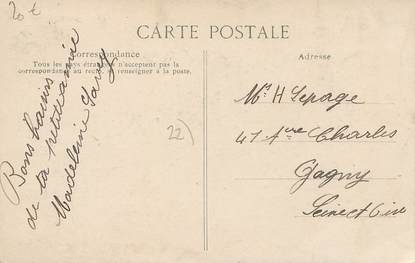 20 €
CARTE POSTALE
Correspondance
Tous les pays étrangers n'acceptent pas la
correspondance au recto, se renseigner à la poste.
Bons baisers
de ta petite amie
Madeleine
22)
Adresse
Mr H Lepage
47 Ave Charles
Gagny
Seine et Oise